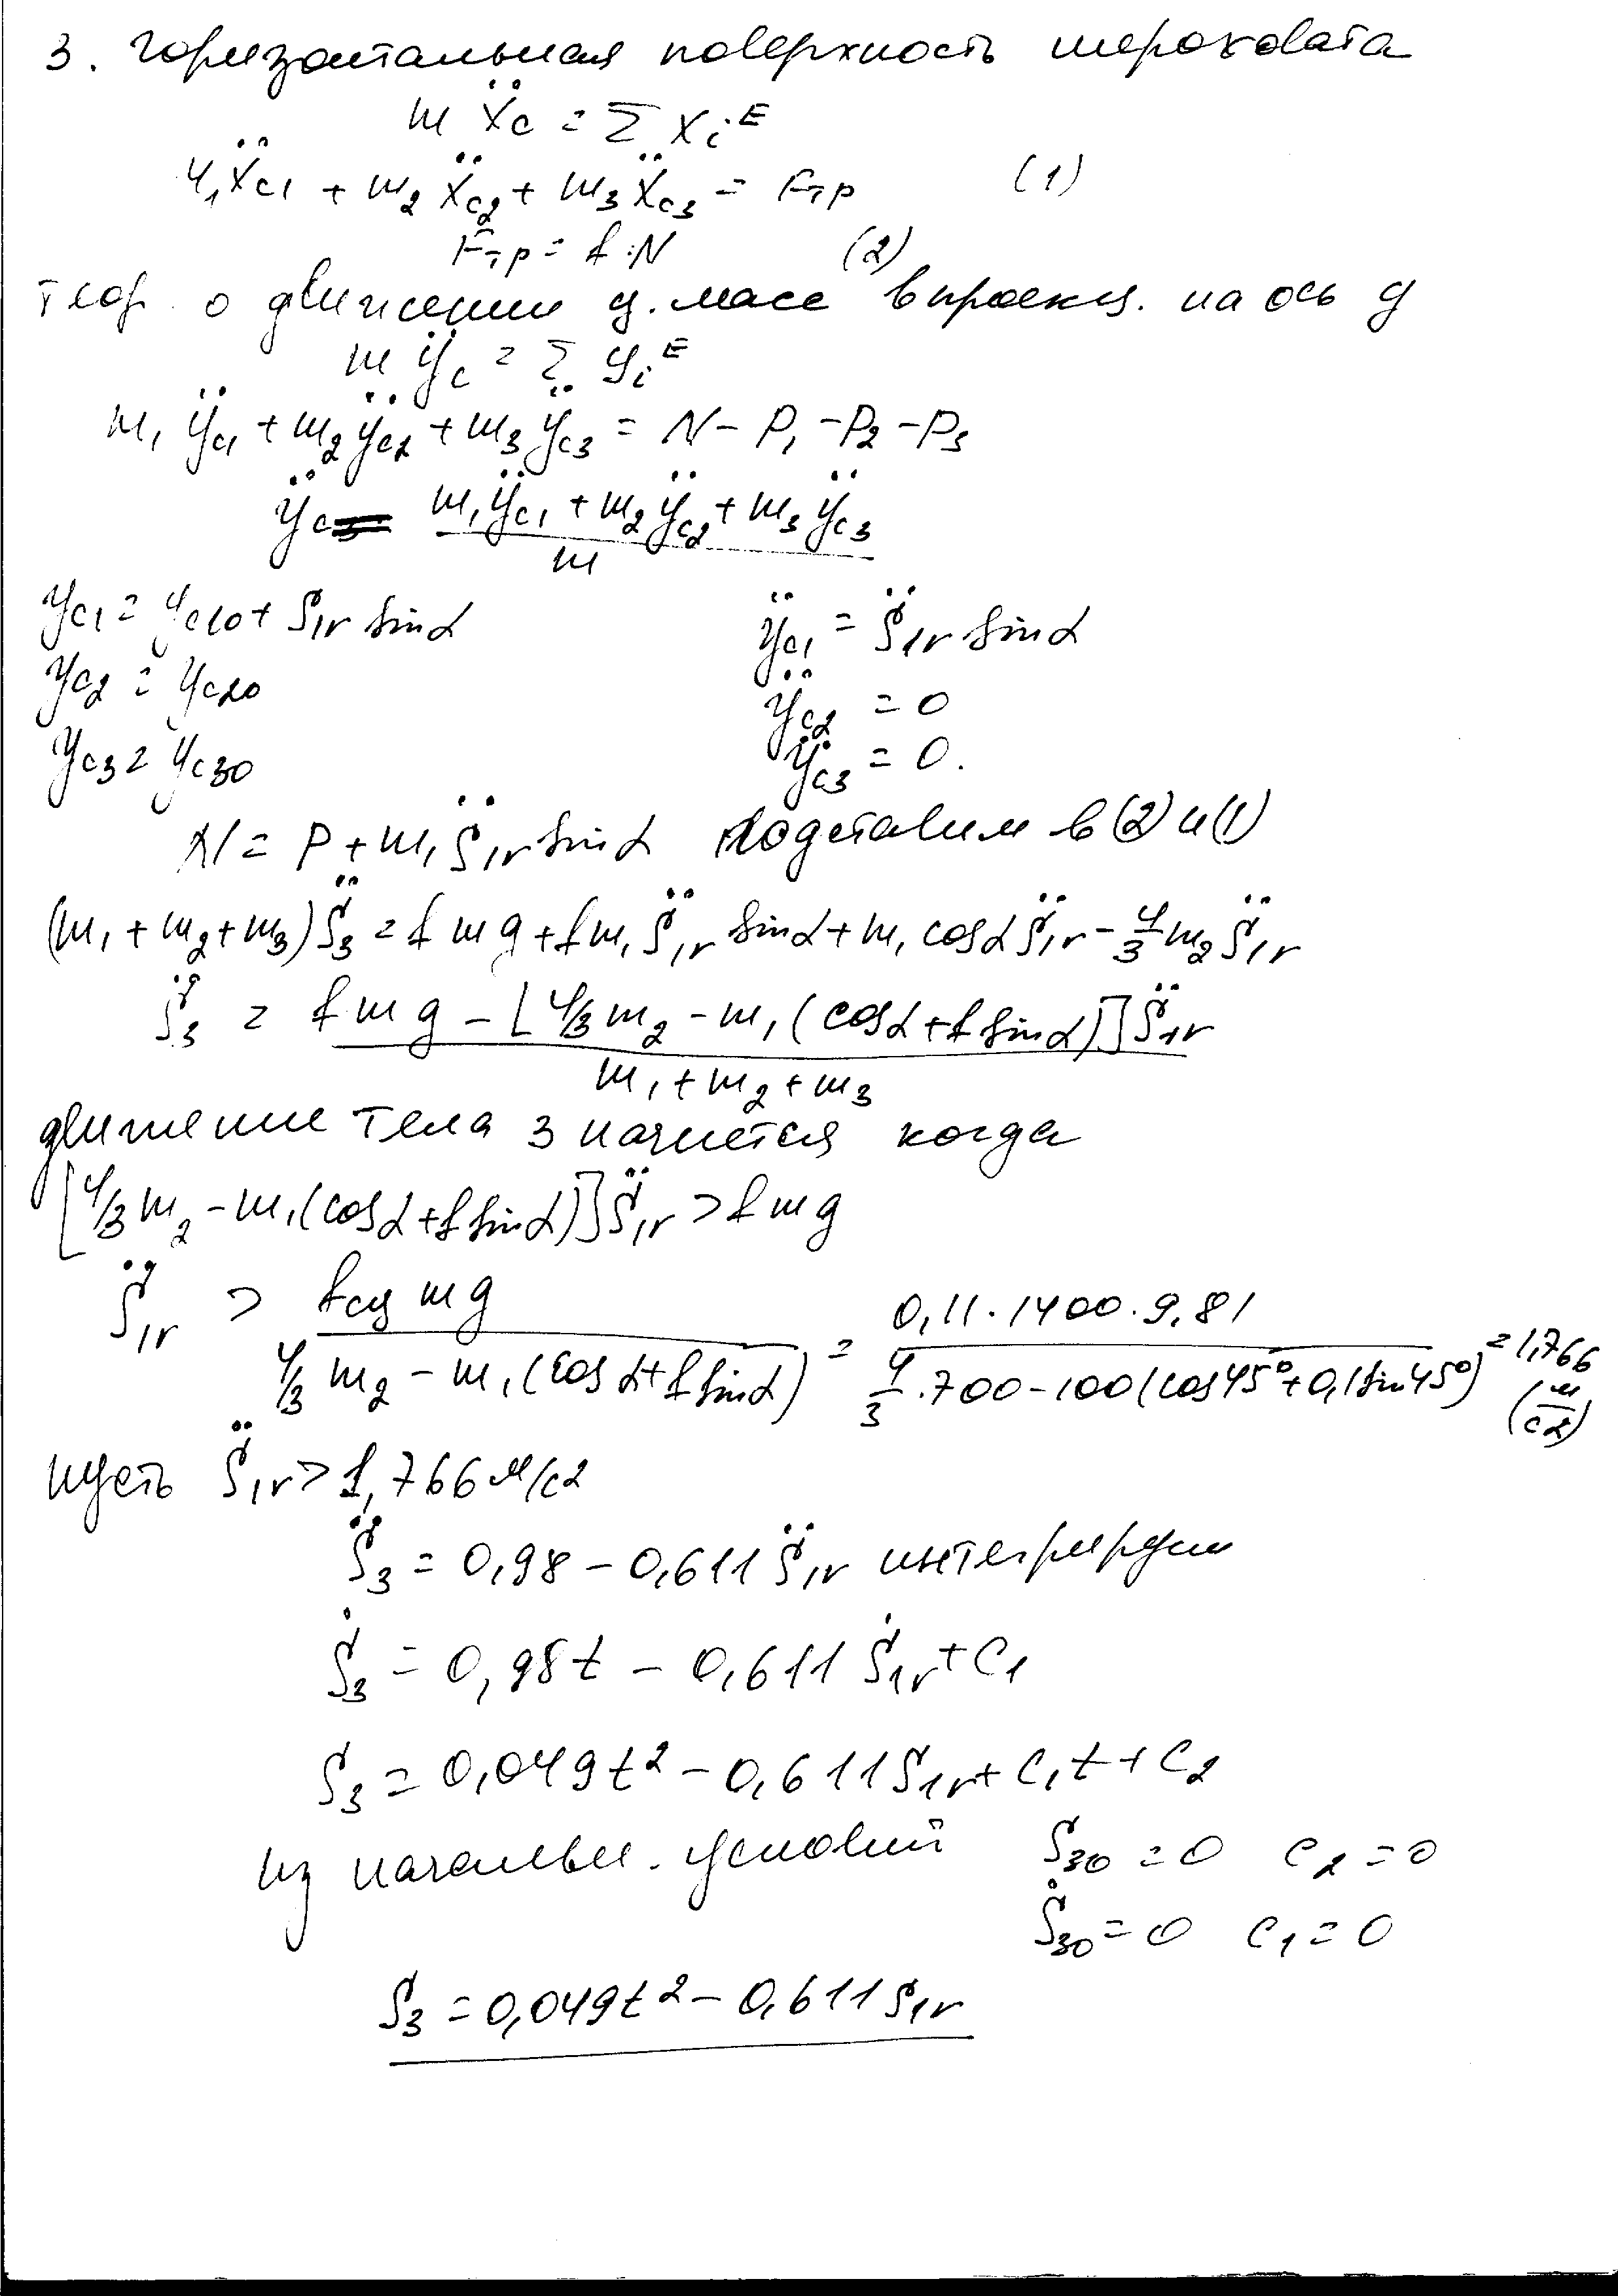 3. Горизонтальная поверхность шероховата
m ẍc = Σ Xi^E
m₁ẍc1 + m₂ẍc2 + m₃ẍc3 = Fтр (1)
Fтр = f·N (2)
теор. о движении ц. масс в проекц. на ось y
m ÿc = Σ Yi^E
m₁ÿc1 + m₂ÿc2 + m₃ÿc3 = N - P₁ - P₂ - P₃
ÿc = (m₁ÿc1 + m₂ÿc2 + m₃ÿc3) / m
yc1 = yc10 + S1r sinα ÿc1 = S̈1r sinα
yc2 = yc20 ÿc2 = 0
yc3 = yc30 ÿc3 = 0.
N = P + m₁S̈1r sinα подставим в (2) и (1)
(m₁ + m₂ + m₃)S̈₃ = f mg + f m₁ S̈1r sinα + m₁ cosα S̈1r - 4/3 m₂ S̈1r
S̈₃ = (f mg - [4/3 m₂ - m₁(cosα + f sinα)]S̈1r) / (m₁ + m₂ + m₃)
движение тела 3 начнется когда
[4/3 m₂ - m₁(cosα + f sinα)]S̈1r > f mg
S̈1r > fсц mg / (4/3 m₂ - m₁(cosα + f sinα)) = 0,11·1400·9,81 / (4/3·700 - 100(cos45° + 0,1sin45°)) = 1,766 (м/с2)
пусть S̈1r > 1,766 м/с2
S̈₃ = 0,98 - 0,611 S̈1r интегрируем
Ṡ₃ = 0,98t - 0,611 Ṡ1r + C₁
S₃ = 0,049t² - 0,611S1r + C₁t + C₂
из начальн. условий S30 = 0 C₂ = 0
Ṡ30 = 0 C₁ = 0
S₃ = 0,049t² - 0,611S1r